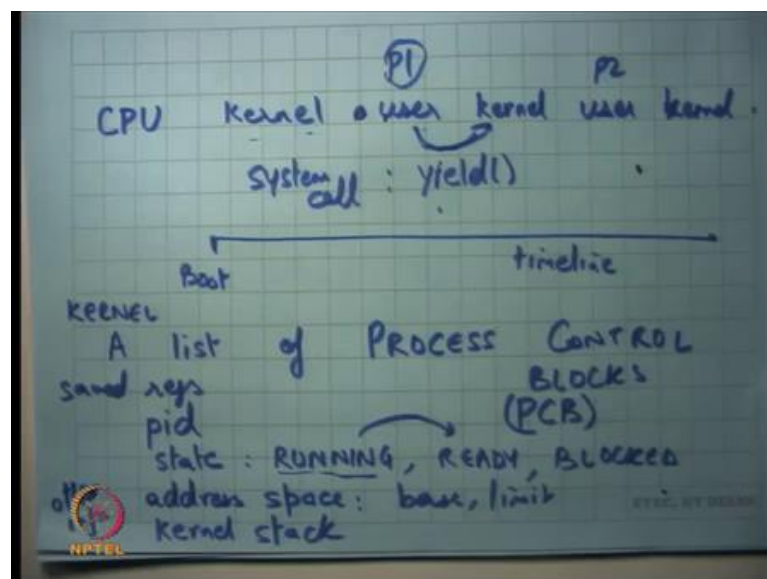 P1 P2
CPU Kernel user kernel user kernel
system call : yield()
Boot timeline
KERNEL
A list of PROCESS CONTROL BLOCKS (PCB)
saved regs
pid
state : RUNNING, READY, BLOCKED
address space : base, limit
kernel stack
NPTEL